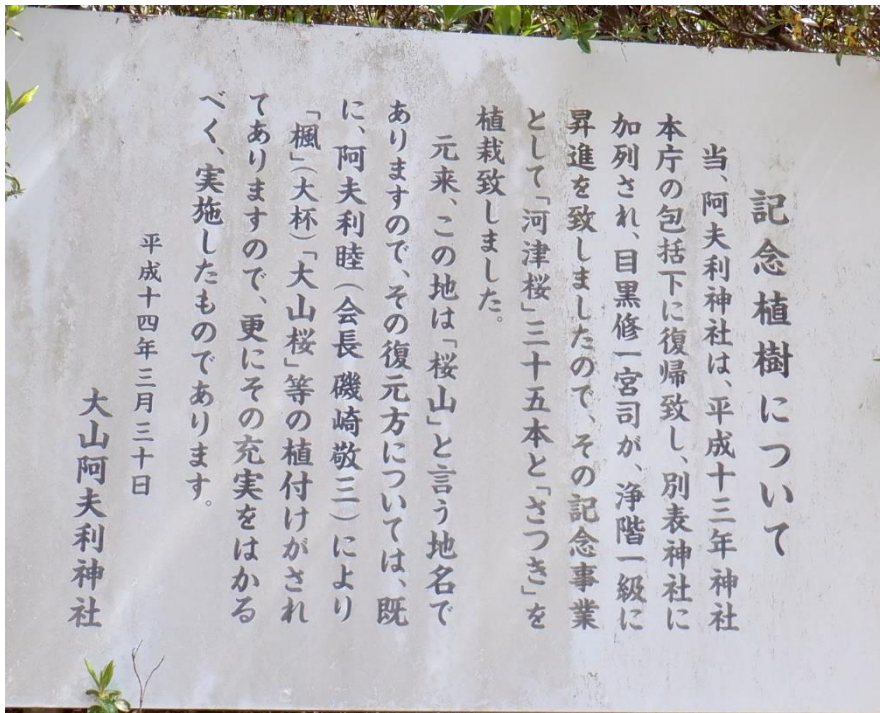 記念植樹について
当、阿夫利神社は、平成十三年神社
本庁の包括下に復帰致し、別表神社に
加列され、目黒修一宮司が、浄階一級に
昇進を致しましたので、その記念事業
として「河津桜」三十五本と「さつき」を
植栽致しました。
元来、この地は「桜山」と言う地名で
ありますので、その復元方については、既
に、阿夫利睦（会長 磯崎敬三）により
「楓」（大杯）「大山桜」等の植付けがされ
てありますので、更にその充実をはかる
べく、実施したものであります。
平成十四年三月三十日
大山阿夫利神社